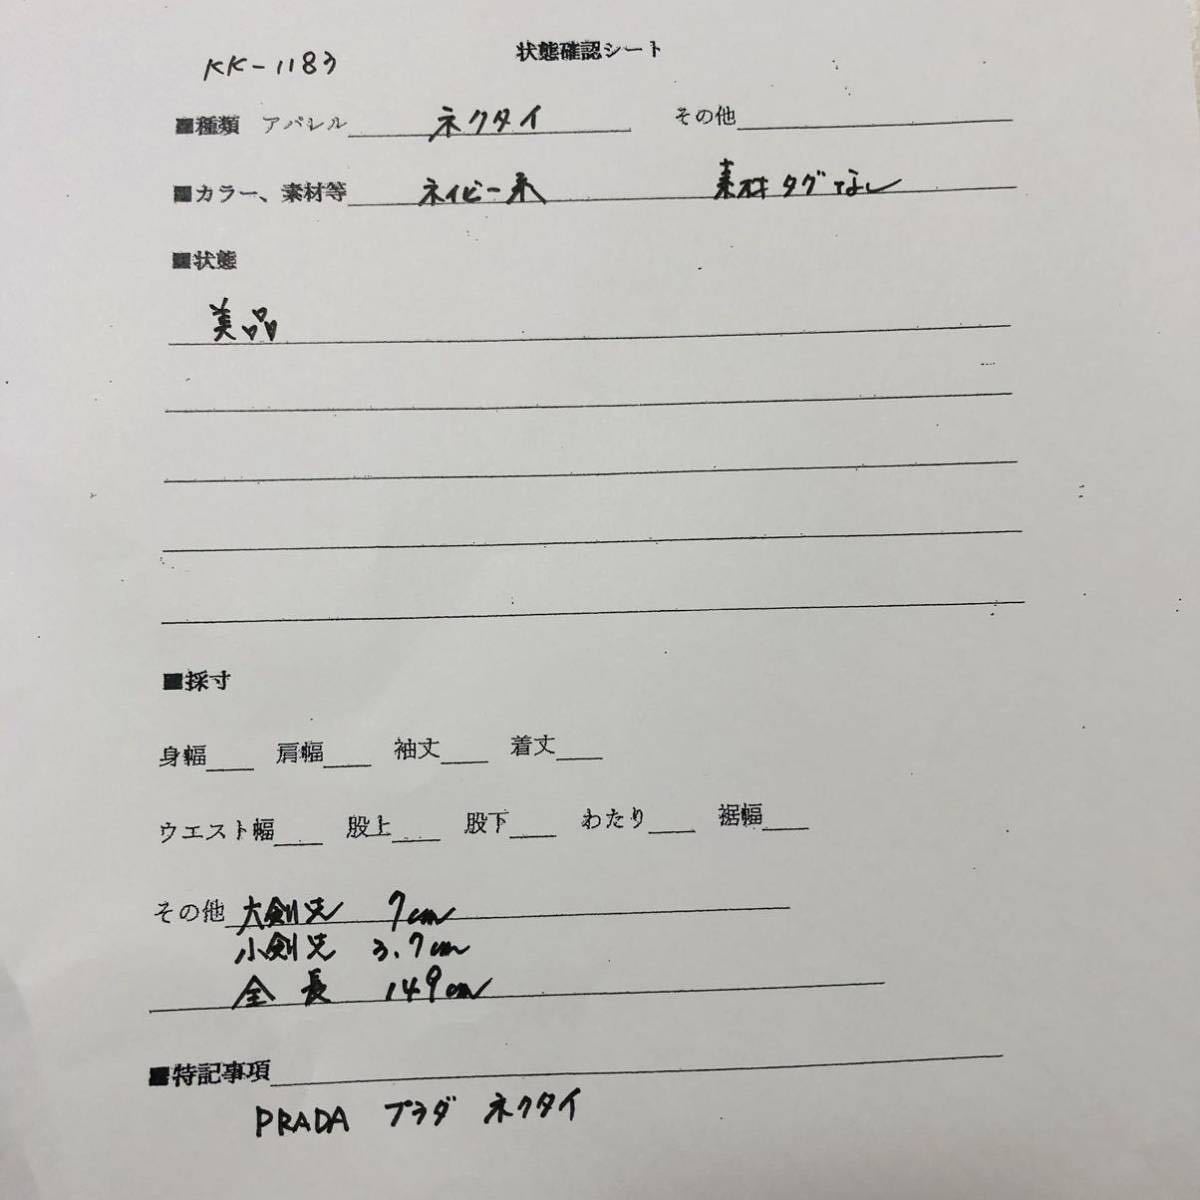 KK-1183
状態確認シート
■種類 アパレル ネクタイ その他
■カラー、素材等 ネイビー系 素材タグなし
■状態
美品
■採寸
身幅 肩幅 袖丈 着丈
ウエスト幅 股上 股下 わたり 裾幅
その他 大剣先 7cm
小剣先 3.7cm
全長 149cm
■特記事項
PRADA プラダ ネクタイ